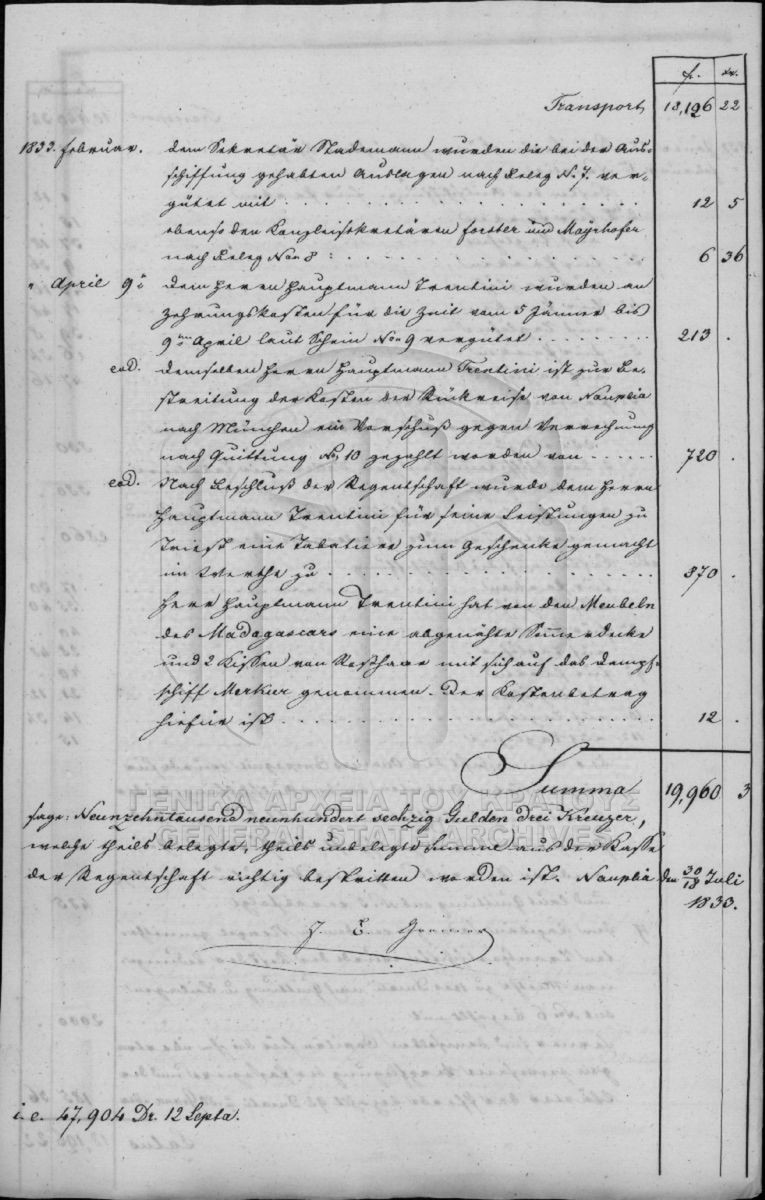 f. xr.
Transport, 18,196 22
1833. Februar. dem Sekretär Stademann wurden die bei der Aus-
schiffung gehabten Auslagen nach Beleg No. 7. ver-
gütet mit . . . 12 5
ebenso den Kanzleisekretären Forster und Mayrhofer
nach Beleg Nro 8 : . . . 6 36
" April 9. dem Herrn Hauptmann Trentini wurden an
Zehrungskosten für die Zeit vom 5 Jänner bis
9ten April laut Schein Nro 9 vergütet . . . 213 .
eod. demselben Herrn Hauptmann Trentini ist zur Be-
streitung der Kosten der Rückreise von Nauplia
nach München ein Vorschuß gegen Verrechnung
nach Quittung No. 10 gezahlt worden von . . . 720 .
eod. Nach Beschluß der Regentschaft wurde dem Herrn
Hauptmann Trentini für seine Leistungen zu
Triest eine Tabatiere zum Geschenke gemacht
im Werthe zu . . . 870 .
Herr Hauptmann Trentini hat von den Meubeln
des Madagascars eine abgenähte Sommerdecke
und 2 Kissen von Roßhaar mit sich auf das Dampf-
schiff Merkur genommen. Der Kostenbetrag
hiefür ist . . . 12 .
Summa 19,960 3
sage: Neunzehntausend neunhundert sechzig Gulden drei Kreuzer,
welche theils belegte, theils unbelegte Summe aus der Kasse
der Regentschaft richtig bestritten worden ist. Nauplia den 30/18 Juli
1833.
i. e. 47,904 Dr. 12 Lepta.
ΓΕΝΙΚΑ ΑΡΧΕΙΑ ΤΟΥ ΚΡΑΤΟΥΣ
GENERAL STATE ARCHIVES